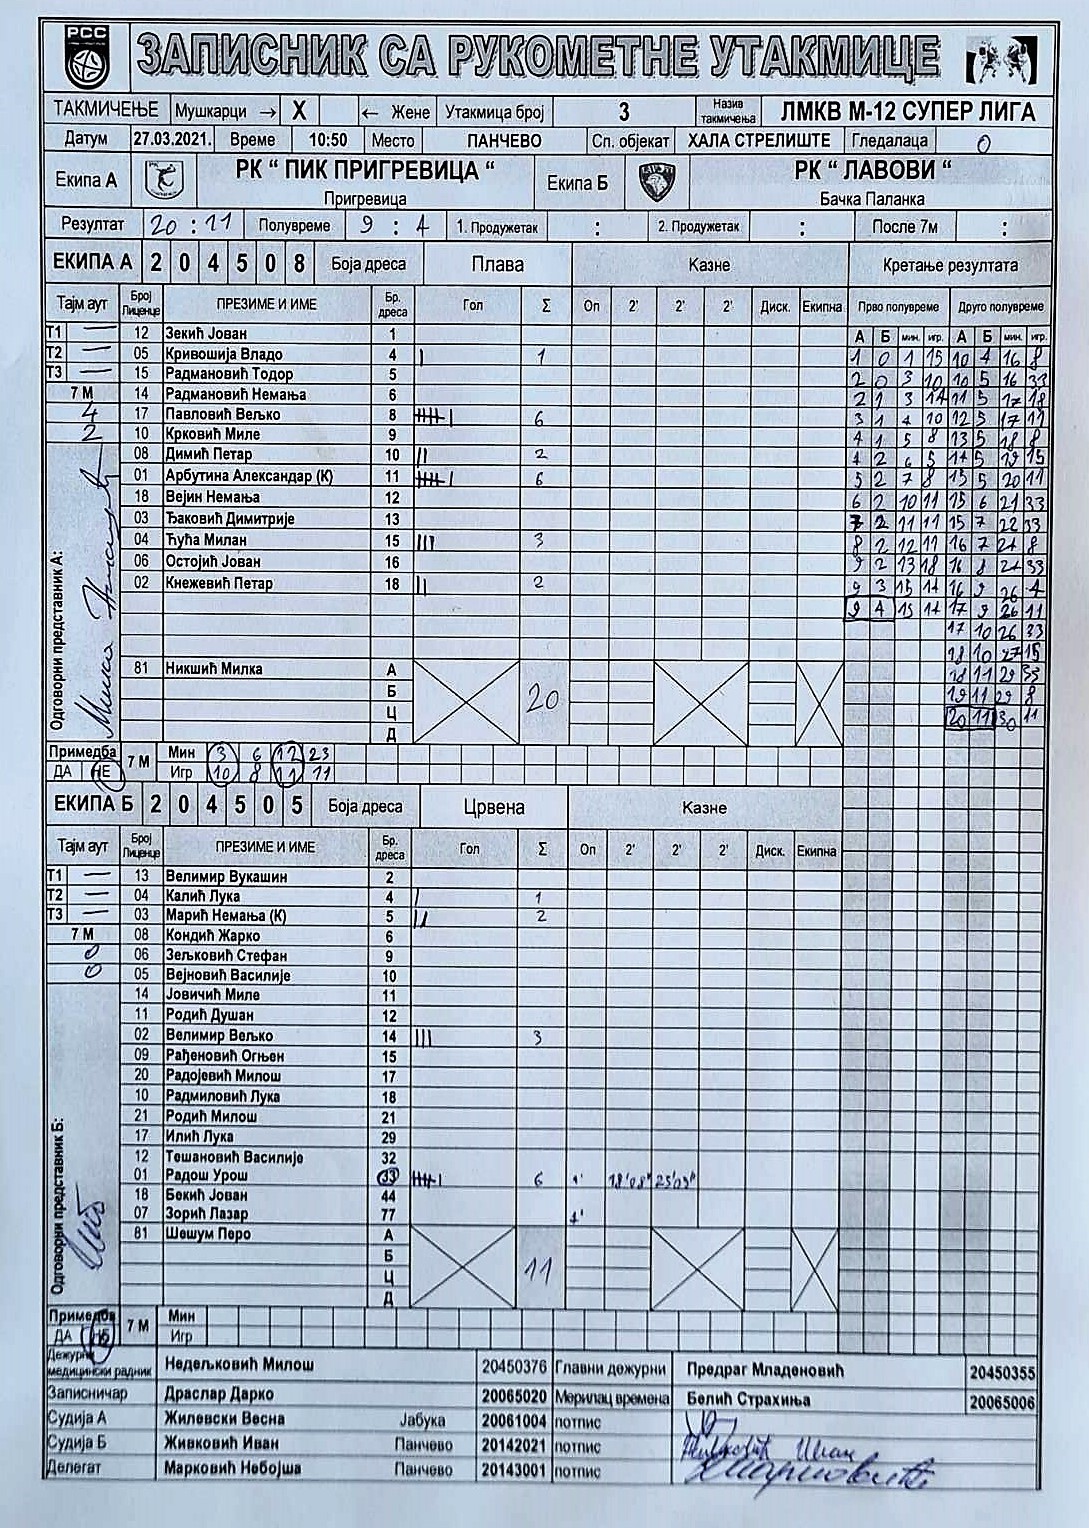 РСС
ЗАПИСНИК СА РУКОМЕТНЕ УТАКМИЦЕ
ТАКМИЧЕЊЕ Мушкарци → X ← Жене Утакмица број 3 Назив такмичења ЛМКВ М-12 СУПЕР ЛИГА
Датум 27.03.2021. Време 10:50 Место ПАНЧЕВО Сп. објекат ХАЛА СТРЕЛИШТЕ Гледалаца 0
Екипа А РК “ ПИК ПРИГРЕВИЦА “ Екипа Б РК “ ЛАВОВИ “
Пригревица Бачка Паланка
Резултат 20 : 11 Полувреме 9 : 4 1. Продужетак : 2. Продужетак : После 7м :
ЕКИПА А 2 0 4 5 0 8 Боја дреса Плава Казне Кретање резултата
Тајм аут Број Лиценце ПРЕЗИМЕ И ИМЕ Бр. дреса Гол Σ Оп 2' 2' 2' Диск. Екипна Прво полувреме Друго полувреме
Т1 — 12 Зекић Јован 1 А Б мин. игр. А Б мин. игр.
Т2 — 05 Кривошија Владо 4 | 1 1 0 1 15 10 4 16 8
Т3 — 15 Радмановић Тодор 5 2 0 3 10 10 5 16 33
7 М 14 Радмановић Немања 6 2 1 3 14 11 5 17 18
4 17 Павловић Вељко 8 6 3 1 4 10 12 5 17 11
2 10 Крковић Миле 9 4 1 5 8 13 5 18 8
08 Димић Петар 10 || 2 4 2 6 5 14 5 19 15
01 Арбутина Александар (К) 11 6 5 2 7 8 15 5 20 11
18 Вејин Немања 12 6 2 10 11 15 6 21 33
03 Ђаковић Димитрије 13 7 2 11 11 15 7 22 33
04 Ћућа Милан 15 ||| 3 8 2 12 11 16 7 24 8
06 Остојић Јован 16 9 2 13 18 16 8 24 33
02 Кнежевић Петар 18 || 2 9 3 15 14 16 9 26 4
9 4 15 14 17 9 26 11
17 10 26 33
18 10 27 15
81 Никшић Милка А 20 18 11 29 33
Б 19 11 29 8
Ц 20 11 30 11
Д
Одговорни представник А:
Примедба 7 М Мин 3 6 12 23
ДА НЕ Игр 10 8 11 11
ЕКИПА Б 2 0 4 5 0 5 Боја дреса Црвена Казне
Тајм аут Број Лиценце ПРЕЗИМЕ И ИМЕ Бр. дреса Гол Σ Оп 2' 2' 2' Диск. Екипна
Т1 — 13 Велимир Вукашин 2
Т2 — 04 Калић Лука 4 | 1
Т3 — 03 Марић Немања (К) 5 || 2
7 М 08 Кондић Жарко 6
0 06 Зељковић Стефан 9
0 05 Вејновић Василије 10
14 Јовичић Миле 11
11 Родић Душан 12
02 Велимир Вељко 14 ||| 3
09 Рађеновић Огњен 15
20 Радојевић Милош 17
10 Радмиловић Лука 18
21 Родић Милош 21
17 Илић Лука 29
12 Тешановић Василије 32
01 Радош Урош 33 6 18'08" 25'03"
18 Бекић Јован 44
07 Зорић Лазар 77
81 Шешум Перо А 11
Б
Ц
Д
Одговорни представник Б:
Примедба 7 М Мин
ДА НЕ Игр
Дежурни медицински радник Недељковић Милош 20450376 Главни дежурни Предраг Младеновић 20450355
Записничар Драслар Дарко 20065020 Мерилац времена Белић Страхиња 20065006
Судија А Жилевски Весна Јабука 20061004 потпис
Судија Б Живковић Иван Панчево 20142021 потпис Живковић Иван
Делегат Марковић Небојша Панчево 20143001 потпис